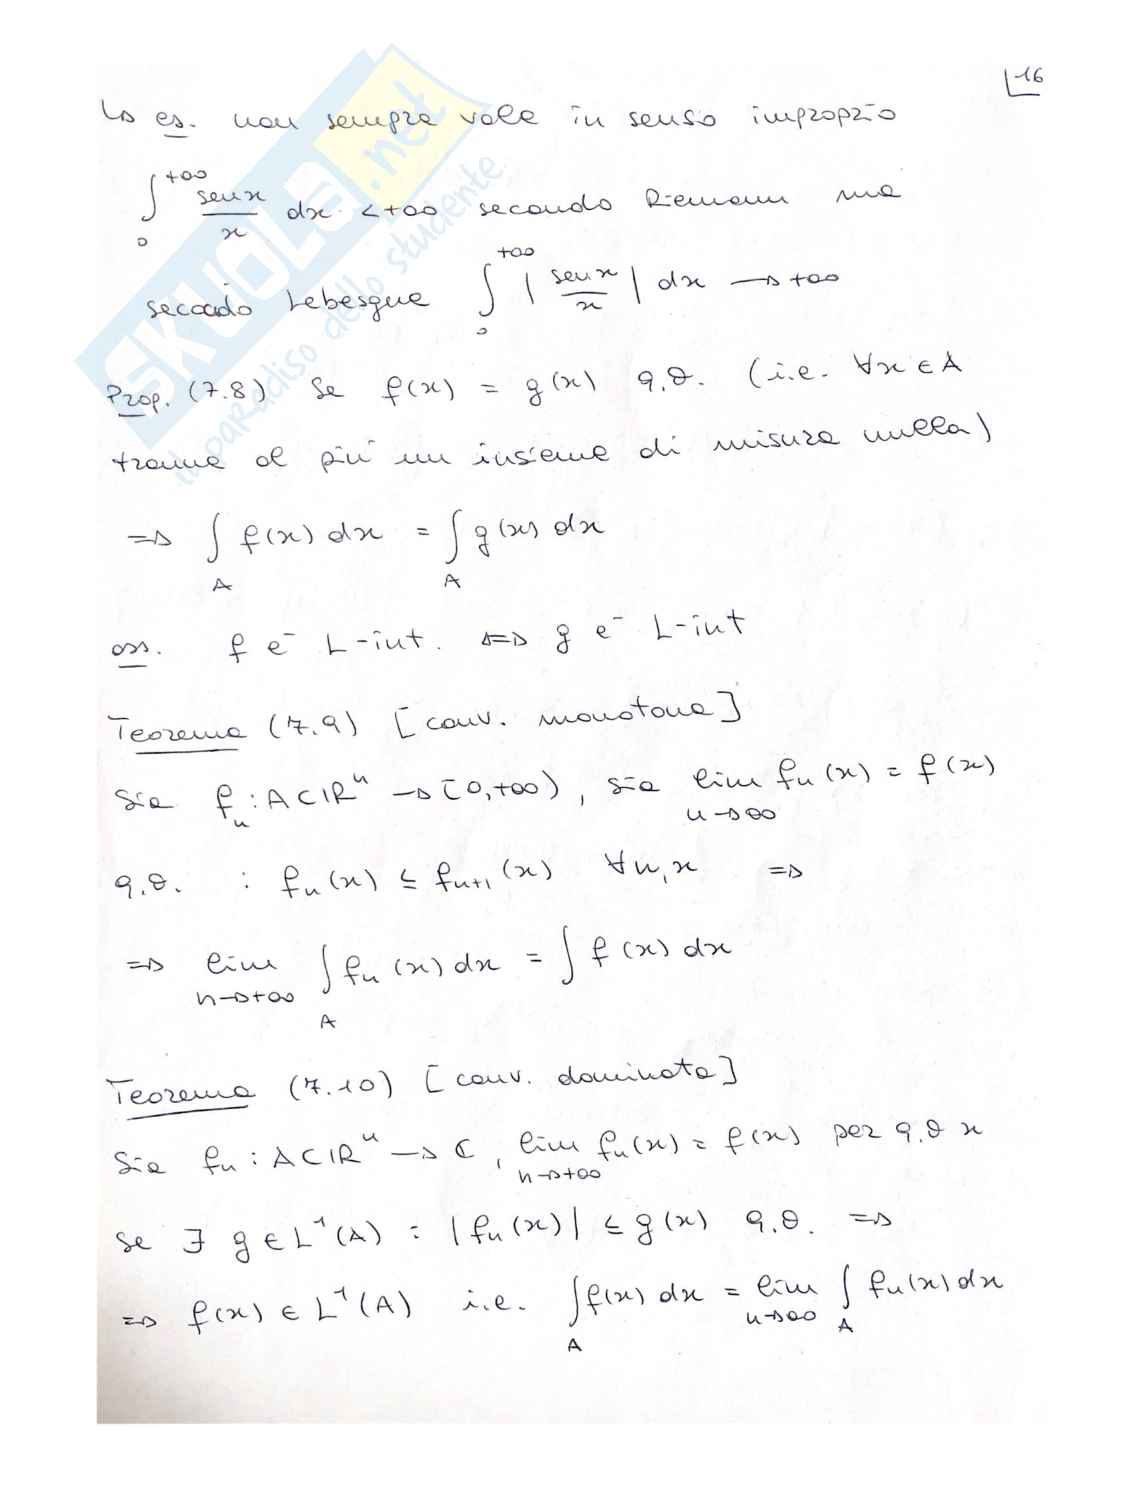 16
↳ es. non sempre vale in senso improprio
∫₀^{+∞} senx/x dx < +∞ secondo Riemann ma
secodo Lebesgue ∫₀^{+∞} | senx/x | dx → +∞
Prop. (7.8) Se f(x) = g(x) q.o. (i.e. ∀x ∈ A
tranne al più un insieme di misura nulla)
⇒ ∫_A f(x) dx = ∫_A g(x) dx
oss. f è L-int. ⇔ g è L-int
Teorema (7.9) [conv. monotona]
Sia fₙ : A⊂ℝⁿ → [0,+∞), sia lim_{n→∞} fₙ(x) = f(x)
q.o. : fₙ(x) ≤ fₙ₊₁(x) ∀n,x ⇒
⇒ lim_{n→+∞} ∫_A fₙ(x) dx = ∫ f(x) dx
Teorema (7.10) [conv. dominata]
Sia fₙ : A⊂ℝⁿ → ℂ, lim_{n→+∞} fₙ(x) = f(x) per q.o x
Se ∃ g ∈ L¹(A) : |fₙ(x)| ≤ g(x) q.o. ⇒
⇒ f(x) ∈ L¹(A) i.e. ∫_A f(x) dx = lim_{n→∞} ∫_A fₙ(x) dx
SKUOLA.net
il paradiso dello studente